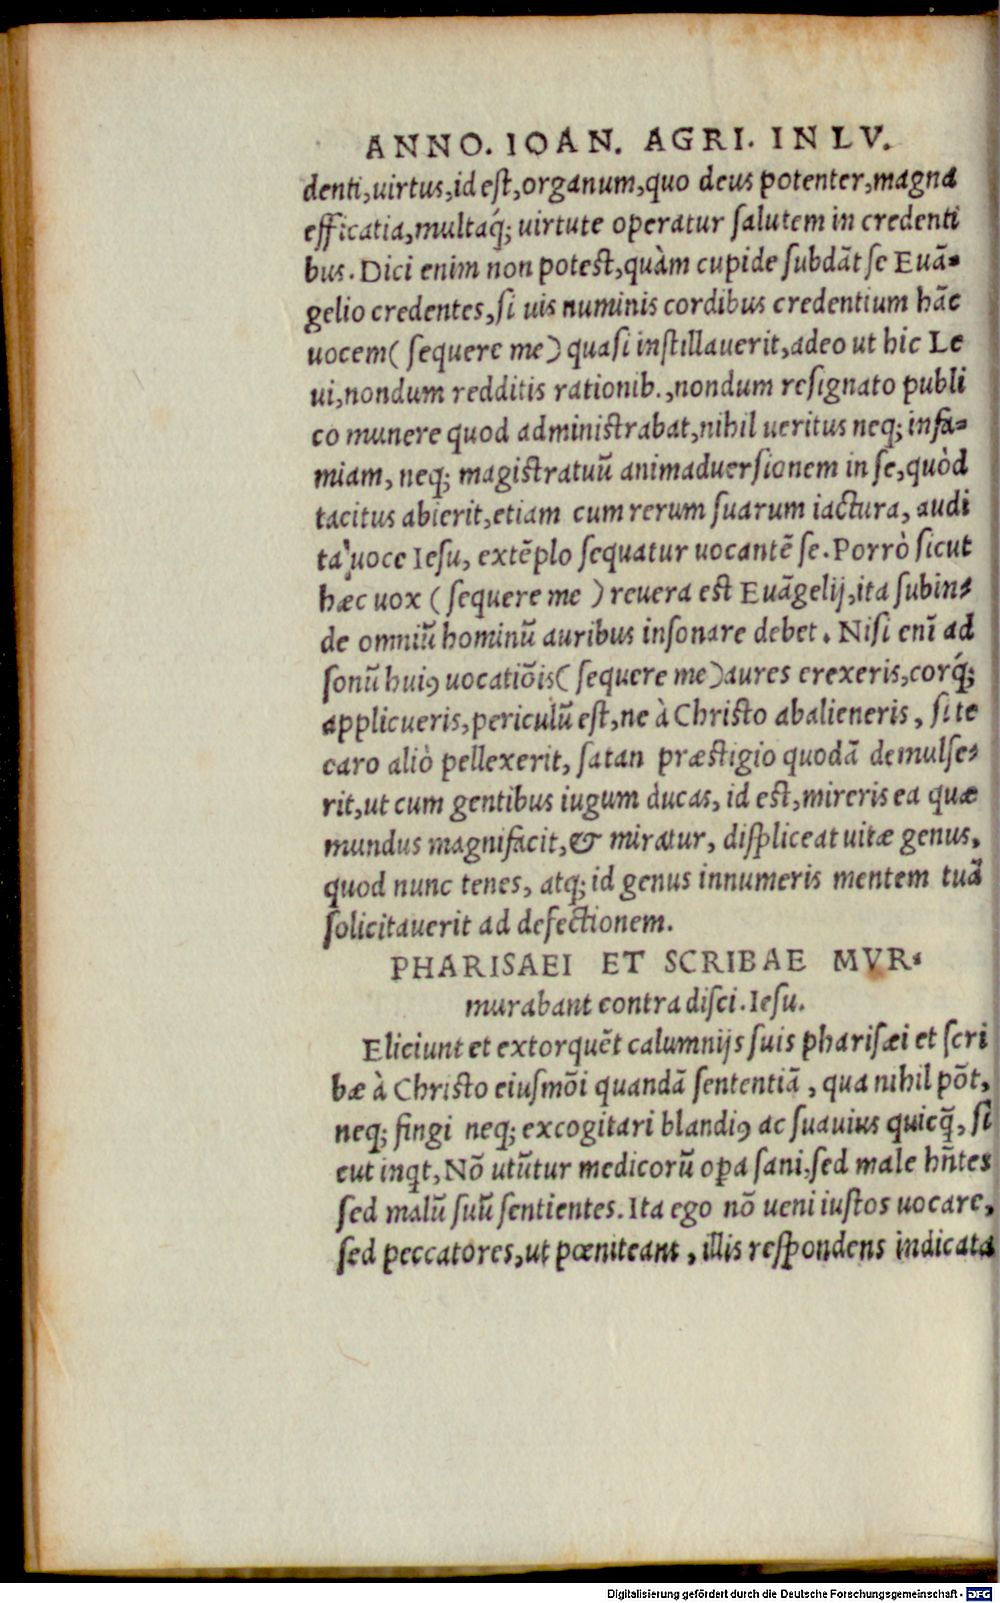 ANNO. IOAN. AGRI. IN LV.
denti,uirtus,id est,organum,quo deus potenter,magna
efficatia,multaq́; uirtute operatur salutem in credenti
bus. Dici enim non potest,quàm cupide subdãt se Euã-
gelio credentes,si uis numinis cordibus credentium hãc
uocem( sequere me) quasi instillauerit,adeo ut hic Le
ui,nondum redditis rationib.,nondum resignato publi
co munere quod administrabat,nihil ueritus neq; infa-
miam, neq; magistratuũ animaduersionem in se,quòd
tacitus abierit,etiam cum rerum suarum iactura, audi
ta uoce Iesu, extẽplo sequatur uocantẽ se. Porrò sicut
hæc uox ( sequere me ) reuera est Euãgelij,ita subin-
de omniũ hominũ auribus insonare debet. Nisi enĩ ad
sonũ huiꝰ uocatiõis( sequere me)aures erexeris,corq́;
applicueris,periculũ est,ne à Christo abalieneris, si te
caro aliò pellexerit, satan præstigio quodã demulse-
rit,ut cum gentibus iugum ducas, id est,mireris ea quæ
mundus magnifacit,& miratur, displiceat uitæ genus,
quod nunc tenes, atq; id genus innumeris mentem tuã
solicitauerit ad defectionem.
PHARISAEI ET SCRIBAE MVR-
murabant contra disci. Iesu.
Eliciunt et extorquẽt calumnijs suis pharisæi et scri
bæ à Christo eiusmõi quandã sententiã, qua nihil põt,
neq; fingi neq; excogitari blandiꝰ ac suauius quicq̃, si
cut inqt, Nõ utũtur medicorũ opa sani,sed male hñtes
sed malũ suũ sentientes. Ita ego nõ ueni iustos uocare,
sed peccatores,ut pœniteant, illis respondens indicata
Digitalisierung gefördert durch die Deutsche Forschungsgemeinschaft - DFG